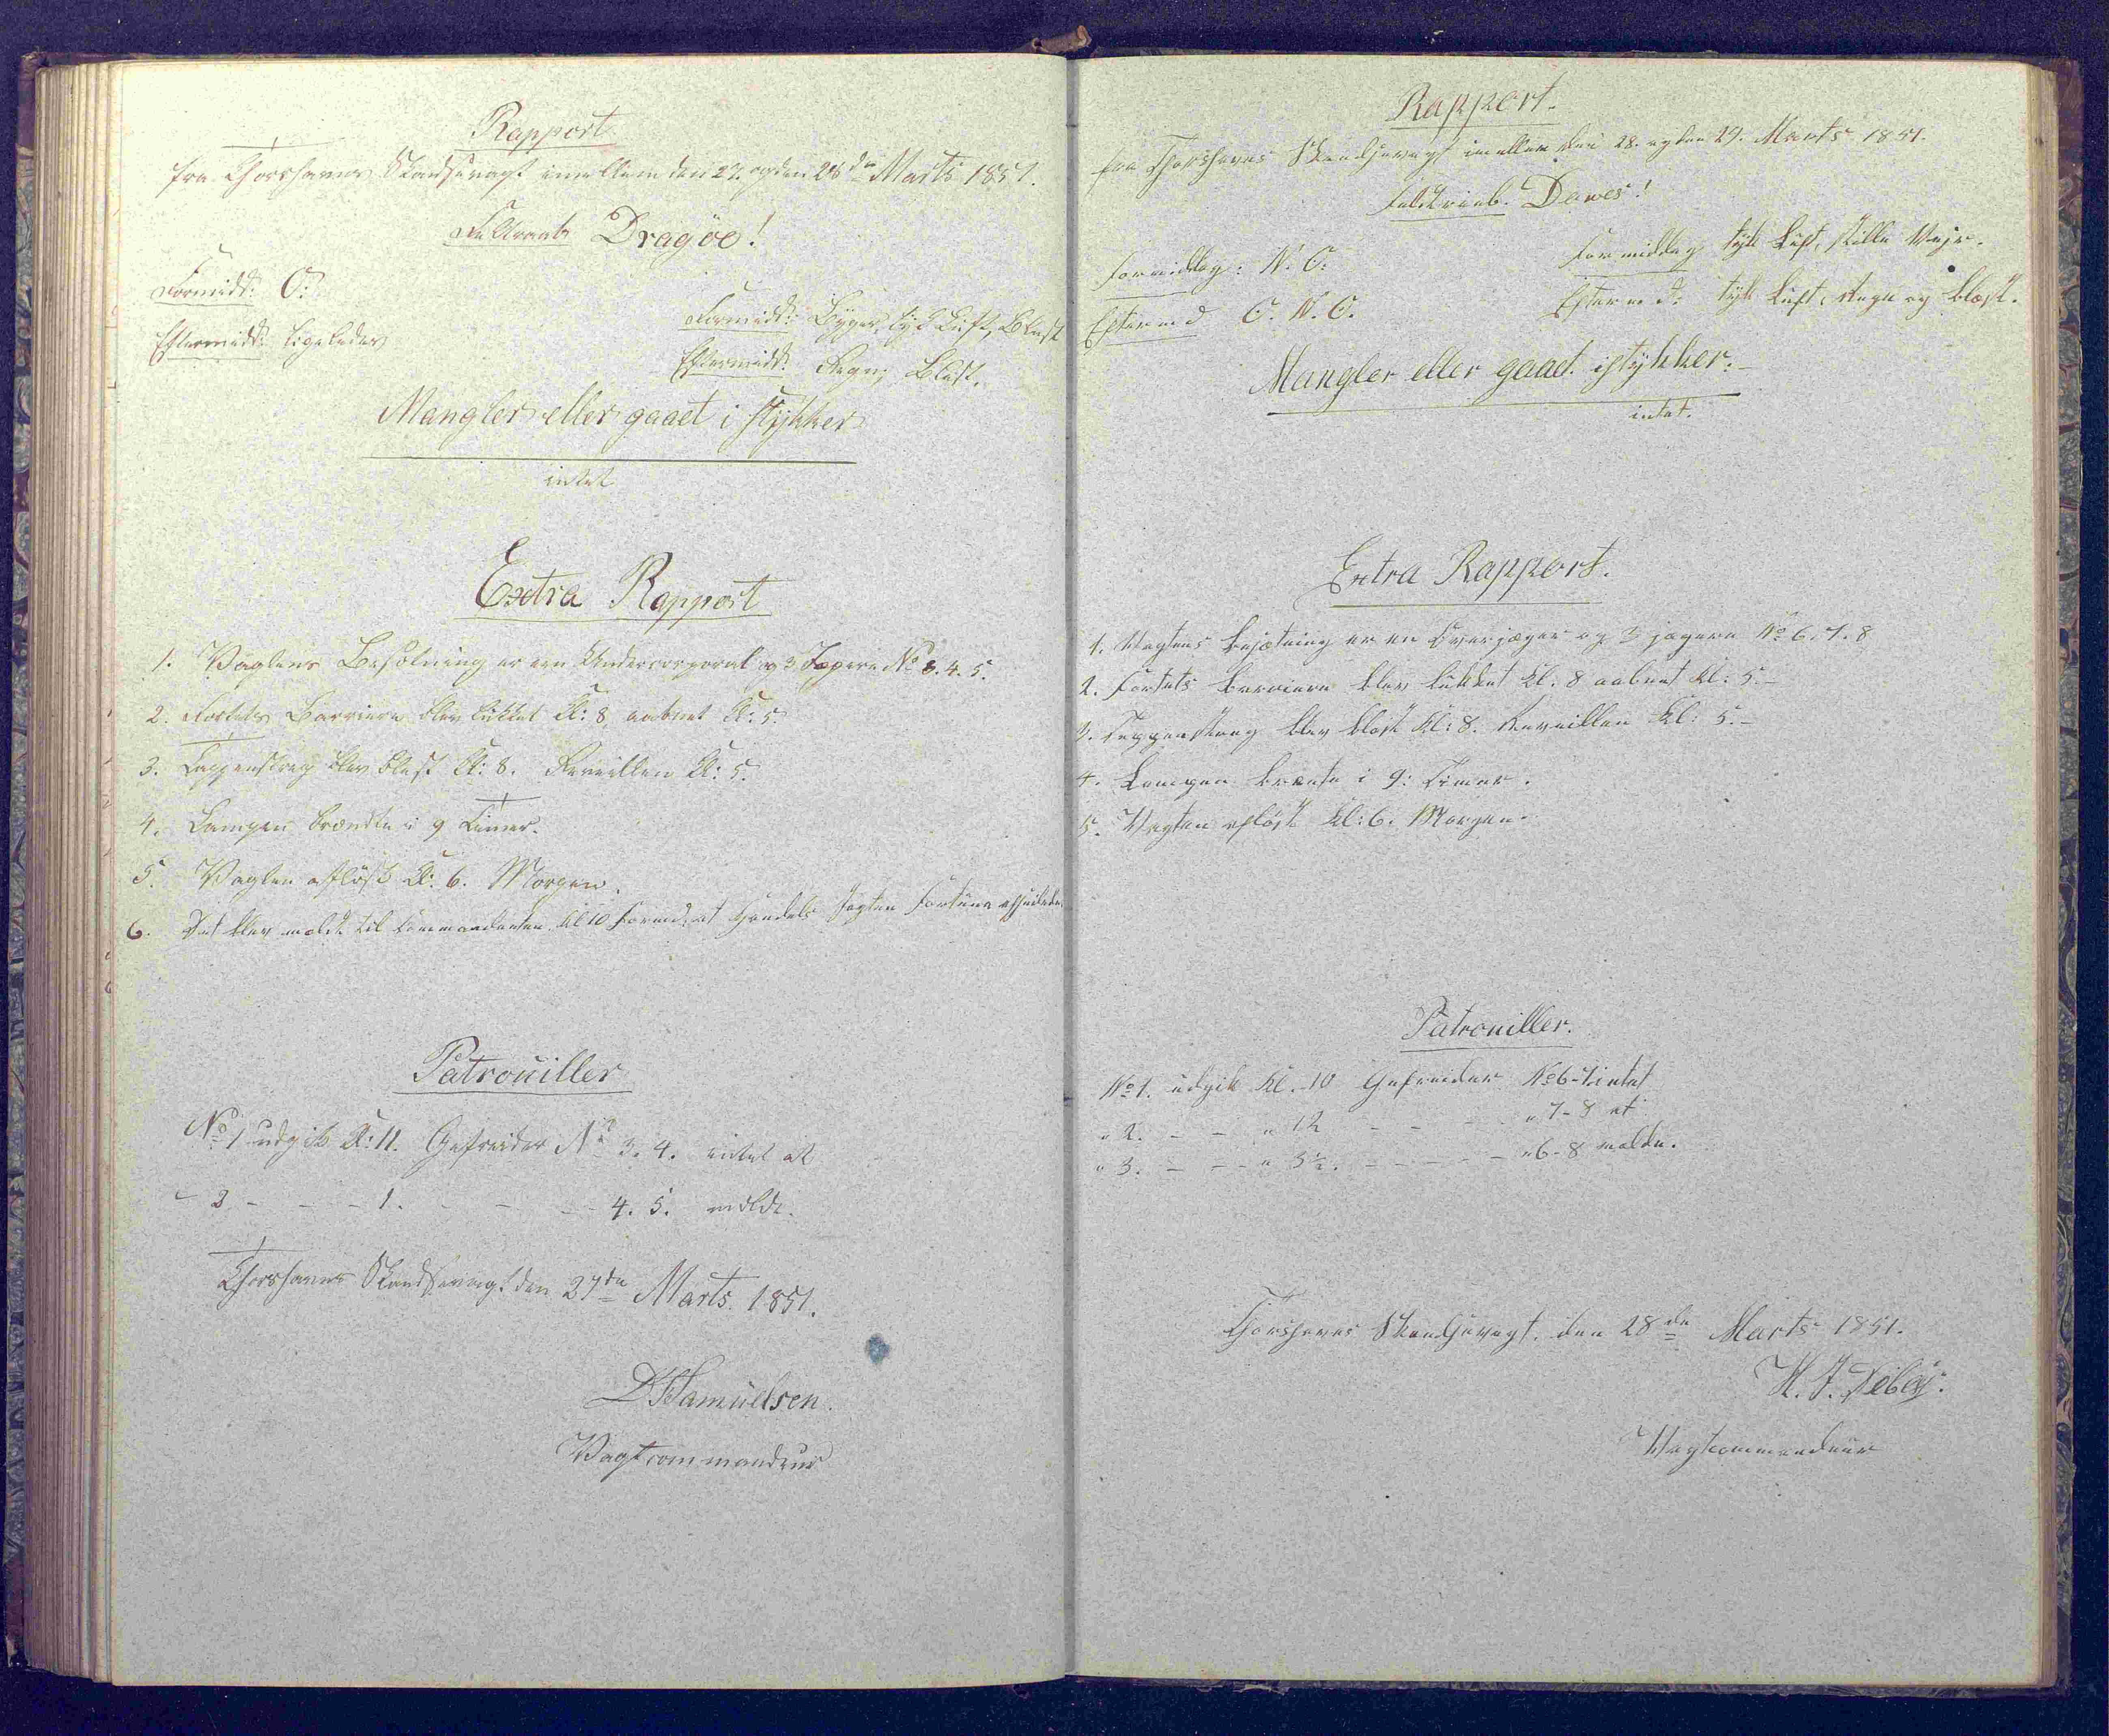 Rapport
fra Thorshavns Skandsevagt imellem den 27. og den 28de Marts 1851.
Feltraab Dragöe!
Formidd: O:
Eftermidd: ligeledes
Formidd: Byger, tyk Luft, Blæst
Eftermidd: Regn, Blæst.
Mangler eller gaaet i stykker
intet
Extra Rapport
1. Vagtens Besætning er een Undercorporal og 3 Jægere No 3. 4. 5.
2. Fortets Barriere blev lukket Kl: 8 aabnet Kl: 5.
3. Tappenstreg blev blæst Kl: 8. Reveillen Kl: 5.
4. Lampen brændte i 9 Timer.
5. Vagten aflöst Kl: 6. Morgen.
6. Det blev meldt til Commandanten Kl 10 Formd: at Handels Jagten Fortuna afseilede.
Patrouiller
No 1 udgik Kl: 11. Gefreider No 3. 4. intet at
- 2 - - - 1. - - - 4. 5. melde.
Thorshavns Skandsevagt den 27de Marts 1851.
D Samuelsen.
Vagtcommandeur
Rapport.
fra Thorshavns Skandsevagt imellem den 28. og den 29. Marts 1851.
Feldtraab. Dawes!
Formiddag: N. O:
Efterm d O. N. O.
Formiddag tyk Luft, stille Vejr.
Efterm d: tyk Luft, Regn og Blæst.
Mangler eller gaaet istykker.-
intet.
Extra Rapport.
1. Vagtens besætning er en Overjæger og 3 jægere No 6. 7. 8
2. Fortets barriere blev lukket Kl: 8 aabnet Kl: 5.-
3. Tappenstreg blev blæst Kl: 8. Reveillen Kl: 5.-
4. Lampen brænte i 9: Timer.
5. Vagten aflöst Kl: 6. Morgen.
Patrouiller.
No 1. udgik Kl. 10 Gefreider No 6-7 intet
" 2. - - " 12 - - - " 7-8 at
" 3. - - - " 3½. - - - - - " 6-8 melde.
Thorshavns Skandsevagt. den 28de Marts 1851.
H. J. Debes.
Vagtcommandeur